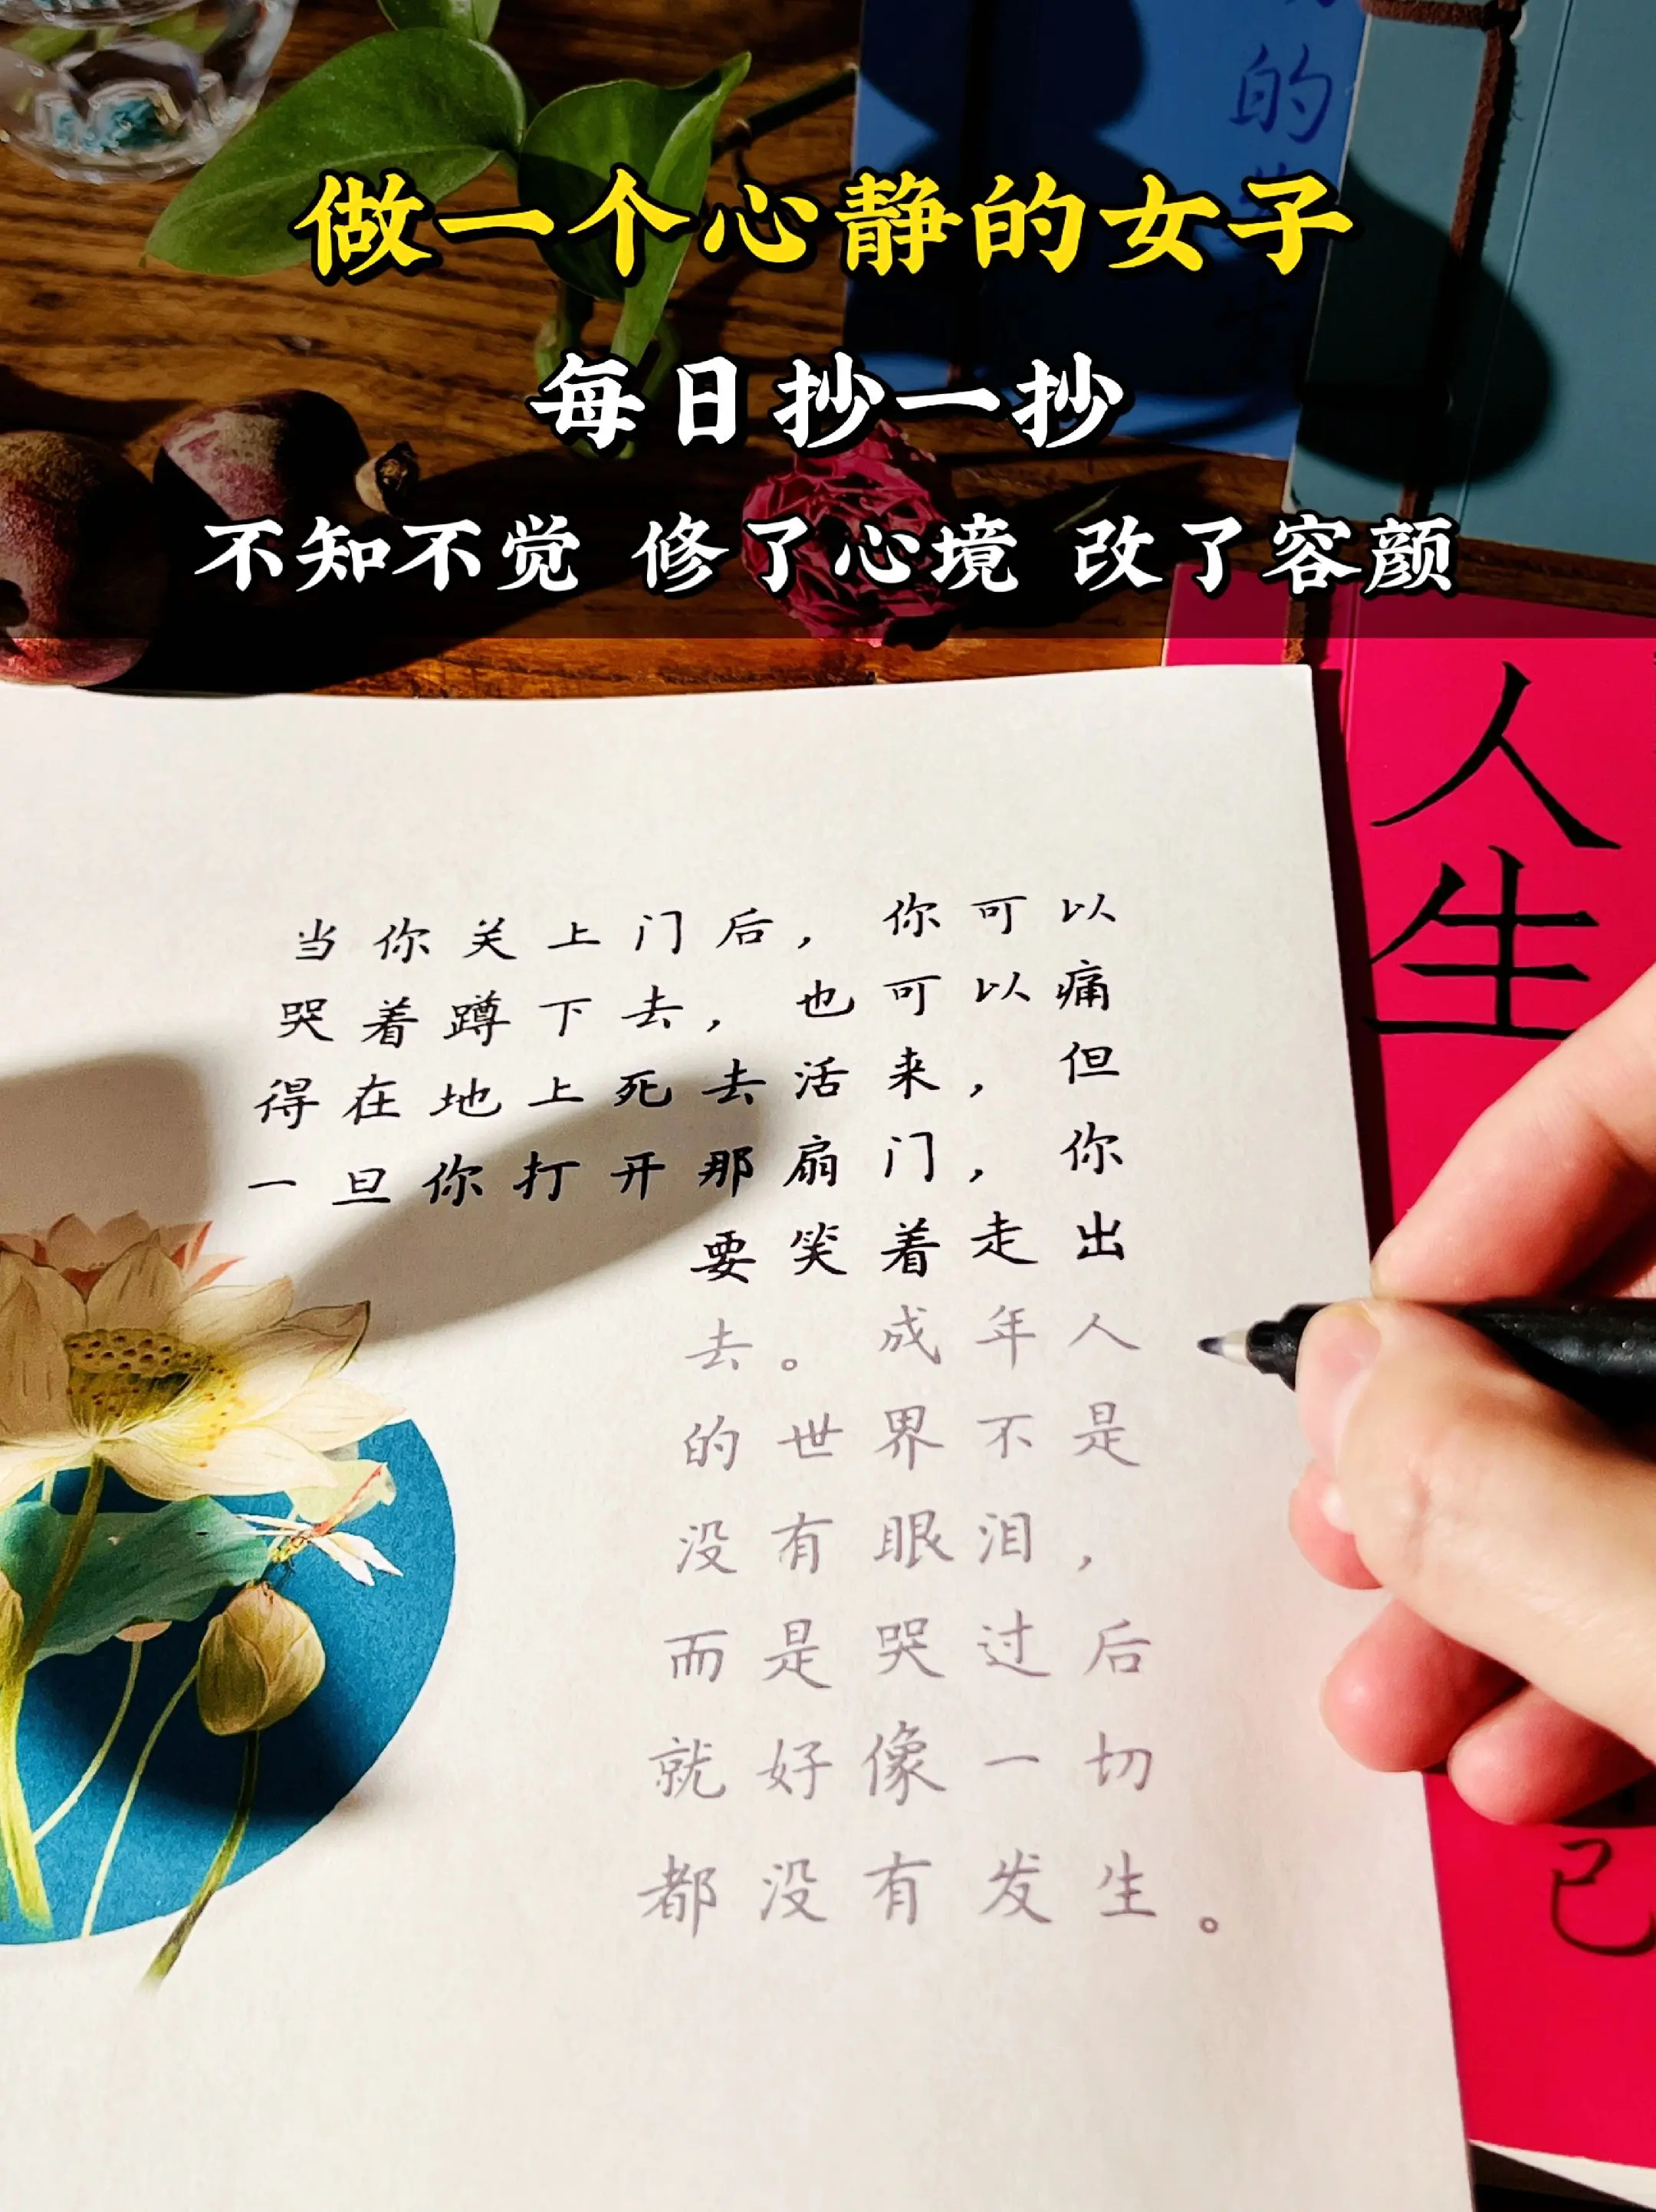 的
做一个心静的女子
每日抄一抄
不知不觉 修了心境 改了容颜
人
生
当你关上门后，你可以
哭着蹲下去，也可以痛
得在地上死去活来，但
一旦你打开那扇门，你
要笑着走出
去。成年人
的世界不是
没有眼泪，
而是哭过后
就好像一切
都没有发生。
己